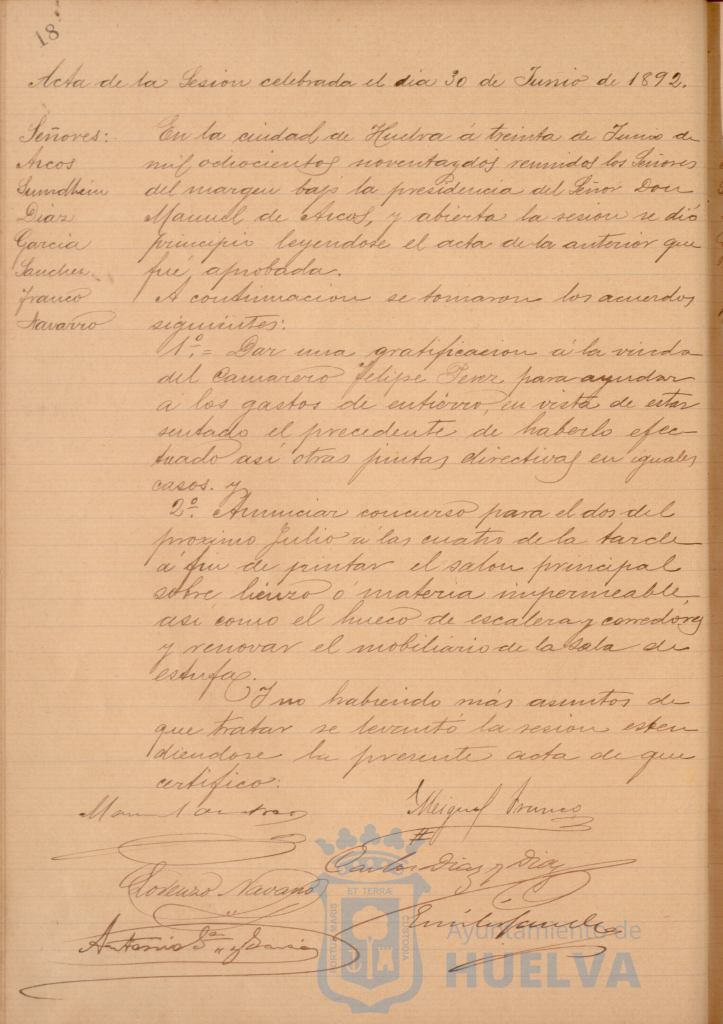 18
Acta de la Sesion celebrada el dia 30 de Junio de 1892.
Señores:
Arcos
Sumdheim
Diaz
Garcia
Sanchez
Franco
Navarro
En la ciudad de Huelva á treinta de Junio de
mil ochocientos noventaydos reunidos los Señores
del margen bajo la presidencia del Señor Don
Manuel de Arcos, y abierta la sesion se dió
principio leyendose el acta de la anterior que
fué aprobada.
A continuacion se tomaron los acuerdos
siguientes:
1º.= Dar una gratificacion á la viuda
del camarero Felipe Perez para ayudar
á los gastos de entierro, en vista de estar
sentado el precedente de haberlo efec-
tuado asi otras juntas directivas en iguales
casos. y
2º. Anunciar concurso para el dos del
proximo Julio á las cuatro de la tarde
á fin de pintar el salon principal
sobre lienzo ó materia impermeable
asi como el hueco de escalera y corredores
y renovar el mobiliario de la sala de
estufa.
Y no habiendo más asuntos de
que tratar se levantó la sesion esten
diendose la presente acta de que
certifico:
Manuel de Arcos
Miguel Franco
Carlos Diaz y Diaz
Lorenzo Navarro
Emilio
Antonio Ga y Garcia
PORTUS MARIS ET TERRÆ CUSTODIA
Ayuntamiento de
HUELVA